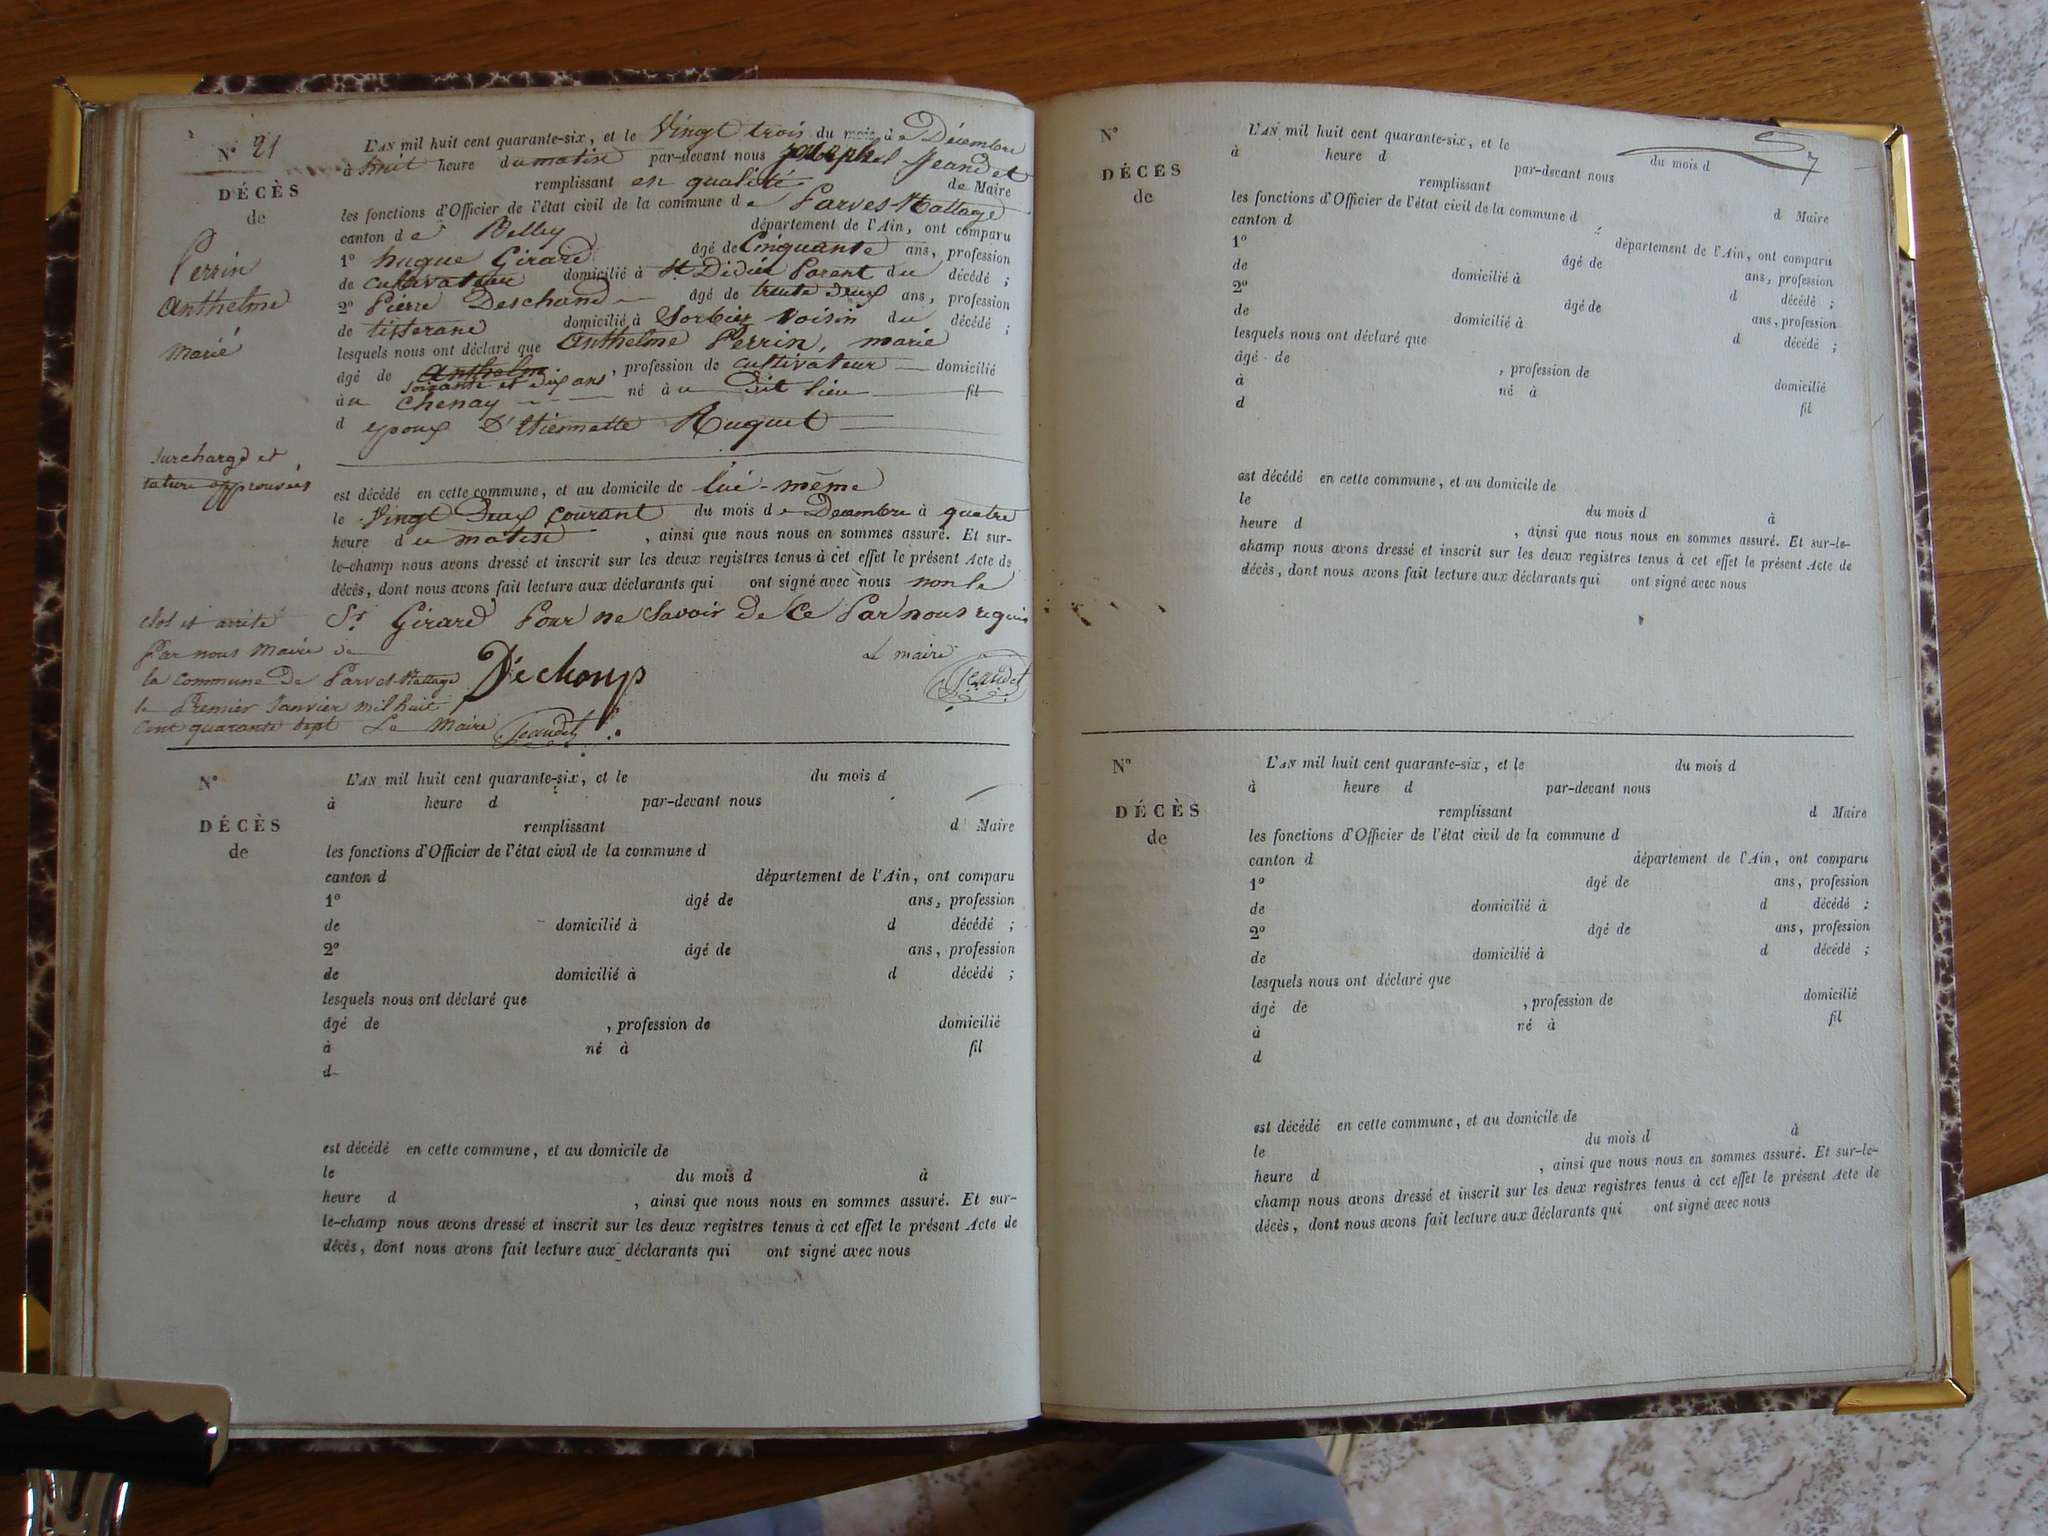 N° 21
DÉCÈS
de
Perrin
Anthelme
marié
L'AN mil huit cent quarante-six, et le Vingt trois du mois de Décembre
à huit heure du matin par-devant nous Joseph Jeandet
remplissant en qualité de Maire
les fonctions d'Officier de l'état civil de la commune de Parves-Nattage
canton de Belley département de l'Ain, ont comparu
1° hugue Girard âgé de Cinquante ans, profession
de cultivateur domicilié à St Didier Parent du décédé ;
2° Pierre Deschand âgé de trente deux ans, profession
de tisserane domicilié à Sorbier Voisin du décédé ;
lesquels nous ont déclaré que Anthelme Perrin, marié
âgé de Anthelme soixante et dix ans, profession de cultivateur domicilié
àu Chenay né àu Dit lieu fil
d époux D'Etiennette Huguet
Surchargé et
rature approuvées
est décédé en cette commune, et au domicile de lui-même
le Vingt Deux courant du mois de Decembre à quatre
heure du matin , ainsi que nous nous en sommes assuré. Et sur-
le-champ nous avons dressé et inscrit sur les deux registres tenus à cet effet le présent Acte de
décès, dont nous avons fait lecture aux déclarants qui ont signé avec nous non le
Sr Girard Pour ne Savoir De Ce Par nous requis
Le maire
Déchoup
Jeandet
clos et arrêté
Par nous Maire de
la commune De Parves-Nattage
le Premier Janvier mil huit
cent quarante sept Le Maire Jeandet
N°
DÉCÈS
de
L'AN mil huit cent quarante-six, et le du mois d
à heure d par-devant nous
remplissant d Maire
les fonctions d'Officier de l'état civil de la commune d
canton d département de l'Ain, ont comparu
1° âgé de ans, profession
de domicilié à d décédé ;
2° âgé de ans, profession
de domicilié à d décédé ;
lesquels nous ont déclaré que
âgé de , profession de domicilié
à né à fil
d
est décédé en cette commune, et au domicile de
le du mois d à
heure d , ainsi que nous nous en sommes assuré. Et sur-
le-champ nous avons dressé et inscrit sur les deux registres tenus à cet effet le présent Acte de
décès, dont nous avons fait lecture aux déclarants qui ont signé avec nous
7
N°
DÉCÈS
de
L'AN mil huit cent quarante-six, et le du mois d
à heure d par-devant nous
remplissant d Maire
les fonctions d'Officier de l'état civil de la commune d
canton d département de l'Ain, ont comparu
1° âgé de ans, profession
de domicilié à d décédé ;
2° âgé de ans, profession
de domicilié à d décédé ;
lesquels nous ont déclaré que
âgé de , profession de domicilié
à né à fil
d
est décédé en cette commune, et au domicile de
le du mois d à
heure d , ainsi que nous nous en sommes assuré. Et sur-le-
champ nous avons dressé et inscrit sur les deux registres tenus à cet effet le présent Acte de
décès, dont nous avons fait lecture aux déclarants qui ont signé avec nous
N°
DÉCÈS
de
L'AN mil huit cent quarante-six, et le du mois d
à heure d par-devant nous
remplissant d Maire
les fonctions d'Officier de l'état civil de la commune d
canton d département de l'Ain, ont comparu
1° âgé de ans, profession
de domicilié à d décédé ;
2° âgé de ans, profession
de domicilié à d décédé ;
lesquels nous ont déclaré que
âgé de , profession de domicilié
à né à fil
d
est décédé en cette commune, et au domicile de
le du mois d à
heure d , ainsi que nous nous en sommes assuré. Et sur-le-
champ nous avons dressé et inscrit sur les deux registres tenus à cet effet le présent Acte de
décès, dont nous avons fait lecture aux déclarants qui ont signé avec nous